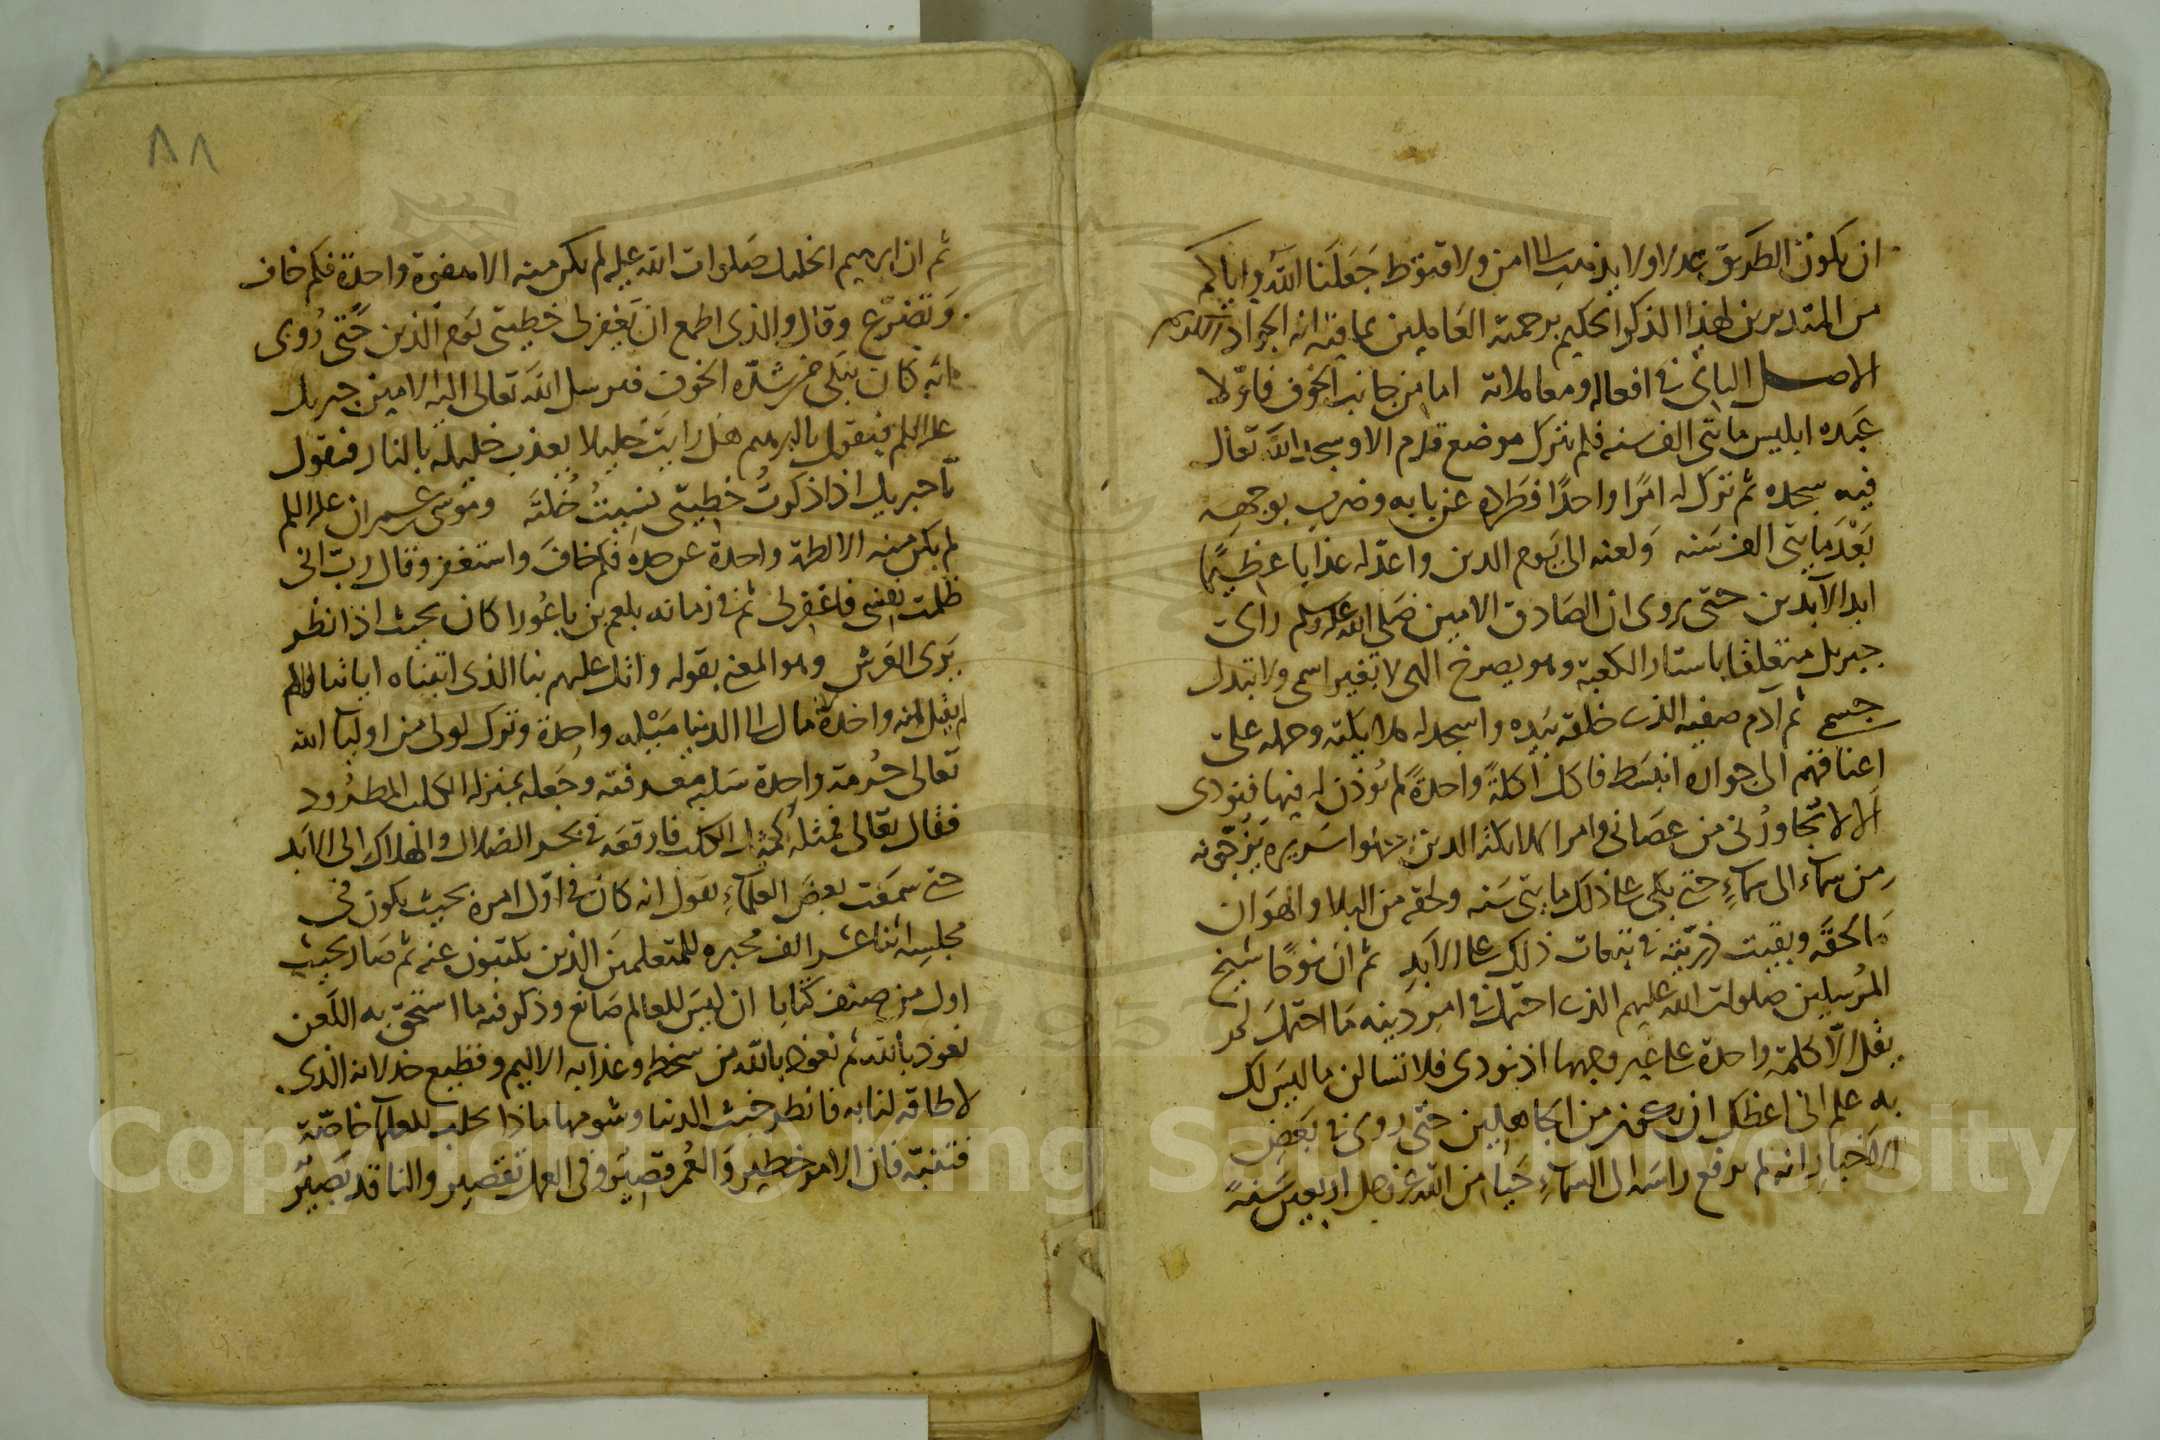 ان يكون الطريق عدلا ولا يذهب الى امن ولا قنوط جعلنا الله واياكم
من المتدبرين لهذا الذكر الحكيم برحمته العاملين بما فيه انه الجواد الكريم
الاصل الثاني في افعاله ومعاملاته اما من جانب الخوف فاولا
عبده ابليس مايتى الف سنه فلم يترك موضع قدم الا وسجد لله تعالى
فيه سجده ثم ترك له امرًا واحدًا فطرده عن بابه وضرب بوجهه
بَعْدَ مايتى الف سَنه ولعنه الى يوم الدين واعدّ له عذابا عظيمًا
ابد الآبدين حتى روى ان الصادق الامين صلى الله عليه وسلم راى
جبريل متعلقا باستار الكعبة وهو يصرخ الهى لا تغير اسمى ولا تبدل
جسمى ثم آدم صفيه الذى خلقه بيده واسجد له ملايكته وحمله على
اعناقهم الى جواره انبسط فاكل أكلةً واحدةً لم يؤذن له فيها فنودى
الا لا يُجاورُنى من عصانى وامر الملايكة الذين حملوا سريره يزجونه
من سماء الى سماءٍ حتى بكى على ذلك مايتى سَنه ولحقه من البلاء والهوان
ما لحقه وبقيت ذريته في تبعات ذلك على الابد ثم ان نوحًا شيخ
المرسلين صلوات الله عليهم الذى احتمل في امر دينه ما احتمل لم
يقل الّا كلمة واحدة على غير وجهها اذ نودى فلا تسالن ما ليس لك
به علم انى اعظك ان تكون من الجاهلين حتى روى في بعض
الاخبار انه لم يرفع راسه الى السماءِ حياءً من الله عز وجل اربعين سَنةً
ثم ان ابرهيم الخليل صلوات الله عليه لم يكن منه الا هفوة واحدة فكم خاف
وتضرّع وقال والذى اطمع ان يَغفر لى خطيتى يوم الدين حتى رُوى
انه كان يبكى من شدّه الخوف فيرسل الله تعالى اليه الامين جبريل
عليه السلم فيقول يا ابرهيم هل رايتَ خليلا يعذب خليله بالنار فيقول
يا جبريل اذا ذكرتُ خطيتى نسيتُ خُلّتَه وموسى بن عمران عليه السلم
لم يكن منه الا لطمة واحدة عن حدة فكم خافَ واستغفر وقال ربّ انى
ظلمت نفسى فاغفر لى ثم في زمانه بلعم بن باعُورا كان بحيث اذا نظر
يرى العَرش وهو المعنى بقوله واتل عليهم نبا الذى اتيناه اياتنا ولم
مال الى الدنيا مَيْله واحدة وترك لولى من اوليآ الله
تعالى حُرمة واحدة سَلبه معرفته وجَعله بمنزله الكلب المطرُود
فقال تعالى فمثله كمثل الكلب فاوقعَه في بحر الضلال والهلاك الى الابد
حتى سمعت بعضَ العلماءِ يقول انه كان في اوّل امره بحيث يكون في
مجلسِه اثنا عشر الف محبره للمتعلمين الذين يكتبون عنه ثم صَار بحيث
اول من صنف كتابا ان ليسَ للعالم صَانع وذكر فيه ما استحق به اللعن
نعوذ بالله ثم نعوذ بالله من سخطه وعذابه الاليم وفظيع خذلانه الذى
لا طاقه لنا به فانظر خبث الدنيا وشومها ماذا يجلب للعلماء خاصّة
فتنبّه فان الامر خطير وَالعُمر قصير وفى العمل تقصير والناقد بَصير
٨٨
Copyright © King Saud University
1957